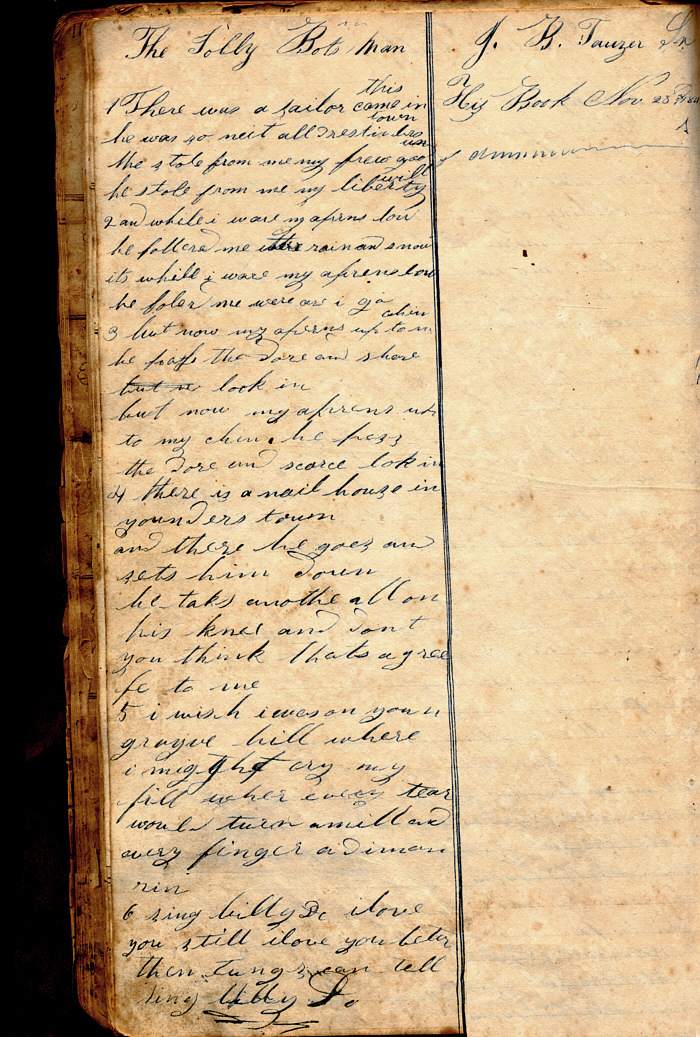 The Jolly Bots man
1 There was a sailor came in this
town
he was so neet all
the stole from me my free good
will
he stole from me my liberty
2 and while i ware my aprens low
he follered me rain and snow
its whill i ware my aprens low
he foler me were are i go
3 but now my aperns up to m
chin
he pass the dore and share
but ne look in
but now my aprens up
to my chin he pess
the dore and scarce lok in
4 there is a nail house in
younders town
and there he goes and
sets him down
he taks anothe all on
his knee and dont
you think thats a gree
fe to me
5 i wish i was on youn
grayve hill where
i might cry my
fill wher every tear
would turn a mill and
avery finger a diman
rin
6 sing billy Do i love
you still i love you beter
then tungs can tell
sing billy Do
J. B. Tauzer
His Book Nov 28